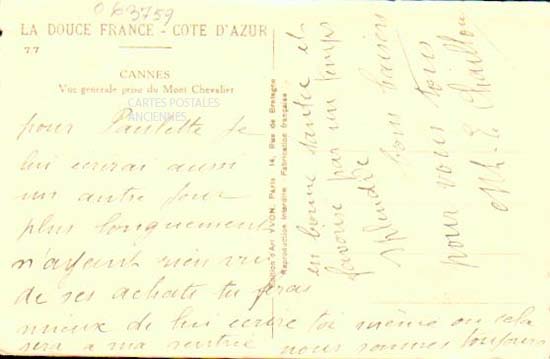 063759
LA DOUCE FRANCE - COTE D'AZUR
77
CANNES
Vue generale prise du Mont Chevalier
CARTES POSTALES
ANCIENNES
pour Paulette je
lui ecrirai aussi
un autre jour
plus longuement
n'ayant rien vu
de ses achats tu feras
mieux de lui ecrire toi même ou cela
sera a ma rentrée nous sommes toujours
en bonne santée et
favorisé par un temps
splendide
bons baisers
pour vous tous
Editions d'Art YVON, Paris 14, Rue de Bretagne
Reproduction Interdite Fabrication française